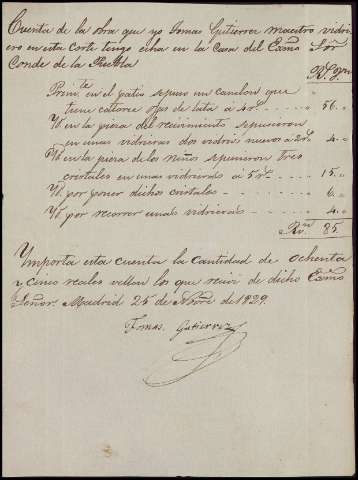 Cuenta de la obra que yo Tomas Gutierrez maestro vidri
ero en esta corte tengo echa en la Casa del Exmo Sor
Conde de la Puebla
Rs vn
Primte en el patio sepuso un canelon que
tiene catorce ojas de lata á 4 rs 56
Yd en la pieza del recivimiento sepusieron
en unas vidrieras dos vidrios nuevos a 2 rs 4
Yd en la pieza de los niños sepusieron tres
cristales en unas vidrieras á 5 rs 15
Yd por poner dichos cristales 6
Yd por recorrer unas vidrieras 4
Rs vn 85
Ymporta esta cuenta la Cantidad de ochenta
y cinco reales vellon los que recivi de dicho Exmo
Señor. Madrid 25 de Nbre de 1829
Tomas Gutierrez